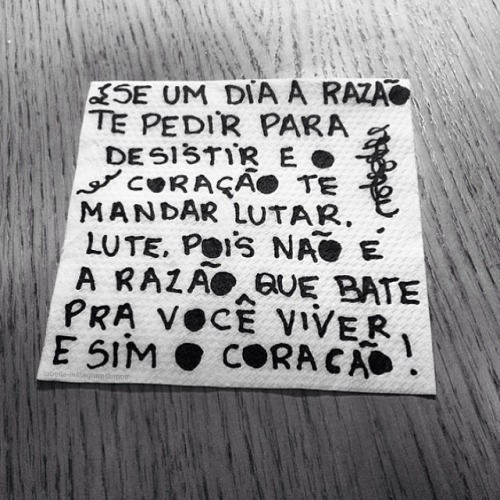 E SE UM DIA A RAZÃO
TE PEDIR PARA
DESISTIR E O
CORAÇÃO TE
MANDAR LUTAR,
LUTE, POIS NÃO É
A RAZÃO QUE BATE
PRA VOCÊ VIVER
E SIM O CORAÇÃO!